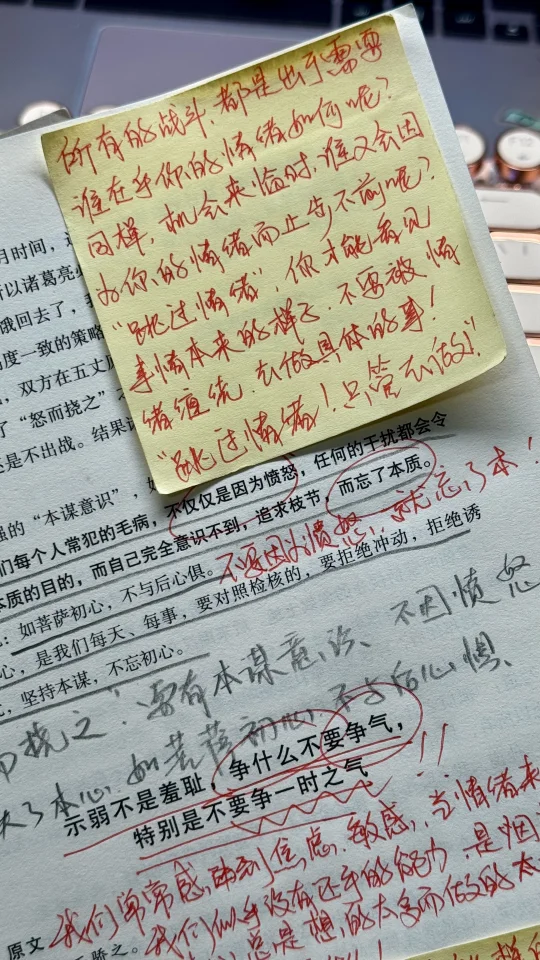 所有的战斗，都是出于需要
谁在乎你的情绪如何呢？
同样，机会来临时，谁又会因
为你的情绪而止步不前呢？
“跳过情绪”，你才能看见
事情本来的样子，不要被情
绪缠绕，去做具体的事！
“跳过情绪！只管去做！”
月时间，
所以诸葛亮
俄回去了，
度一致的策略
，双方在五丈原
了“怒而挠之”不
还是不出战。结果
强的“本谋意识”，
们每个人常犯的毛病，不仅仅是因为愤怒，任何的干扰都会令
本质的目的，而自己完全意识不到，追求枝节，而忘了本质。
不要因为愤怒，就忘了本！
：如菩萨初心，不与后心俱。
心，是我们每天、每事，要对照检核的，要拒绝冲动，拒绝诱
，坚持本谋，不忘初心。
而挠之：要有本谋意识、不因愤怒
失了本心，如菩萨初心，不与后心俱、
示弱不是羞耻，争什么不要争气，
特别是不要争一时之气
！！
我们常常感到焦虑、敏感，当情绪来
我们似乎没有还手的能力，是
总是想的太多而做的太
原文
骄之。